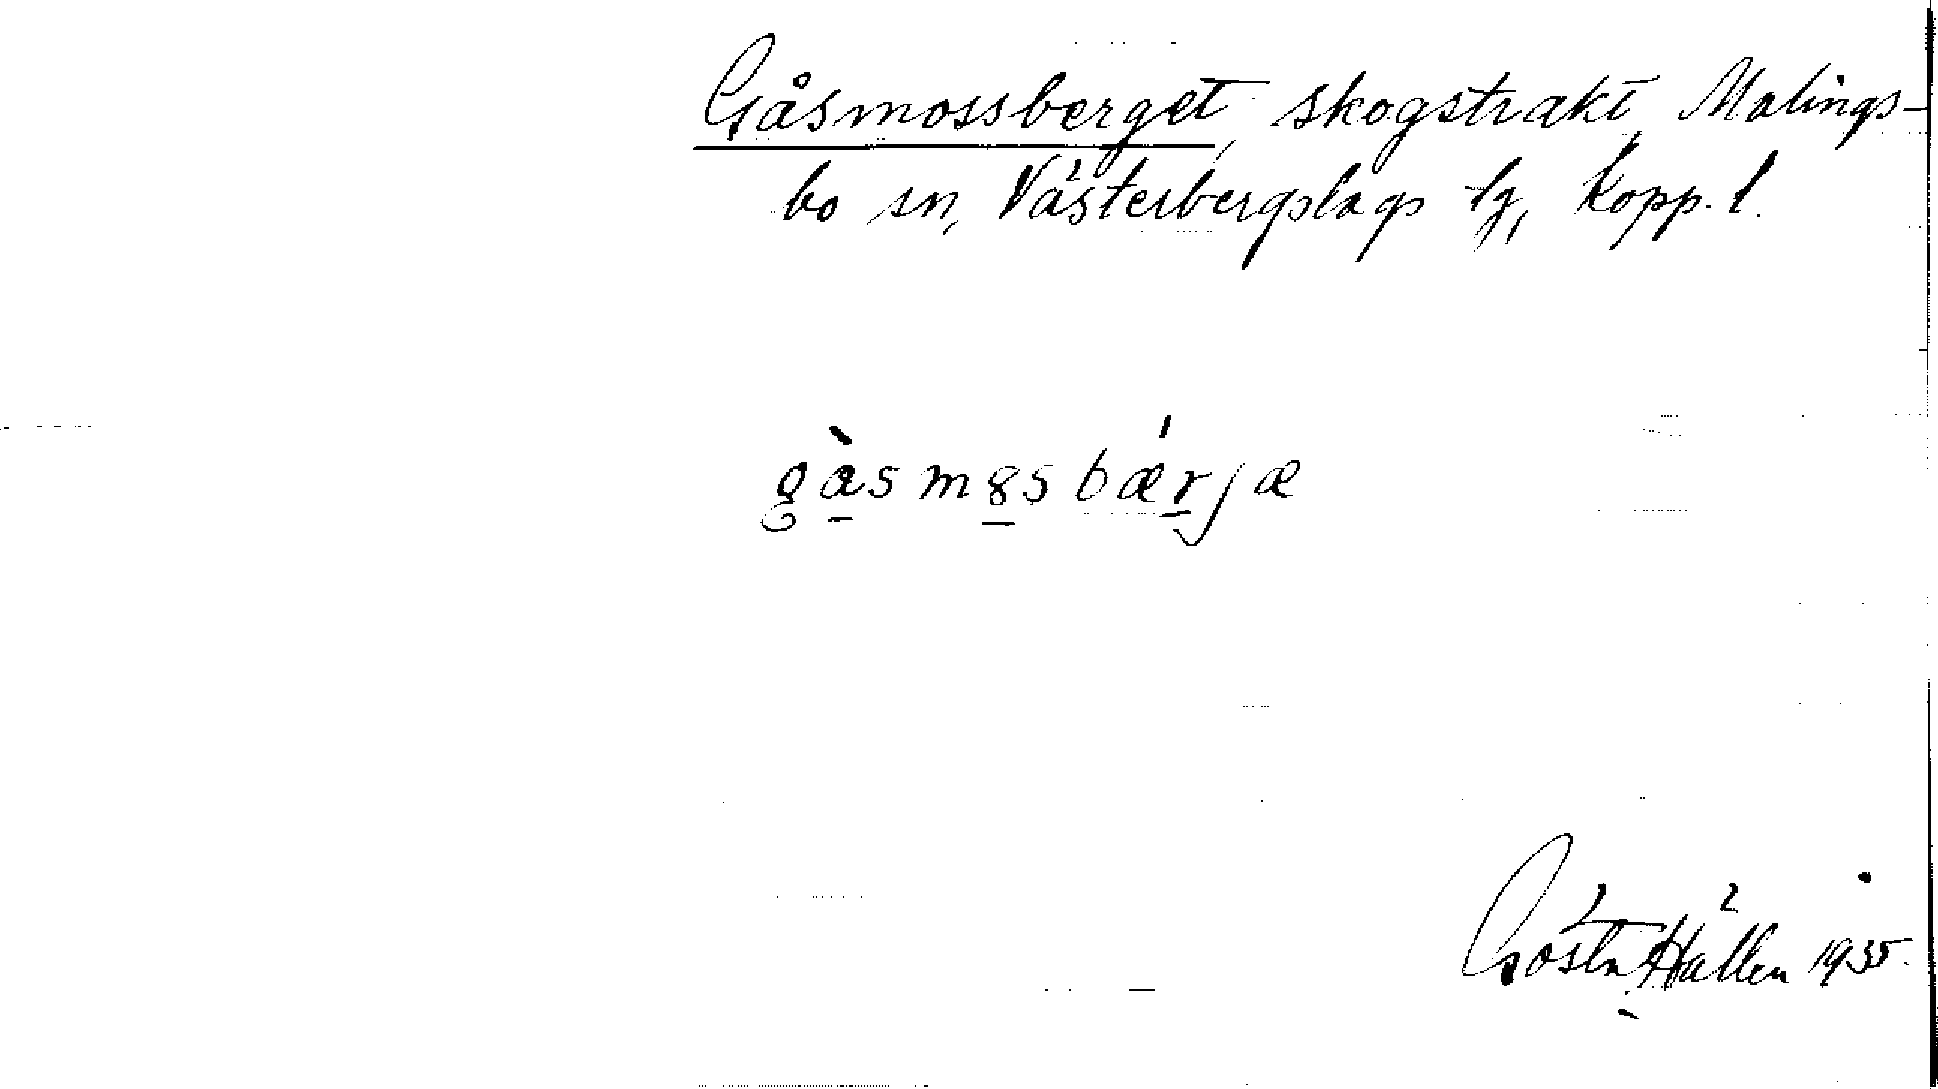 Gåsmossberget, skogstrakt, Malings-
bo sn, Västerbergslags tg, Kopp. l.
gàsmɞsbǽrjæ
Gösta Hällen 1935.